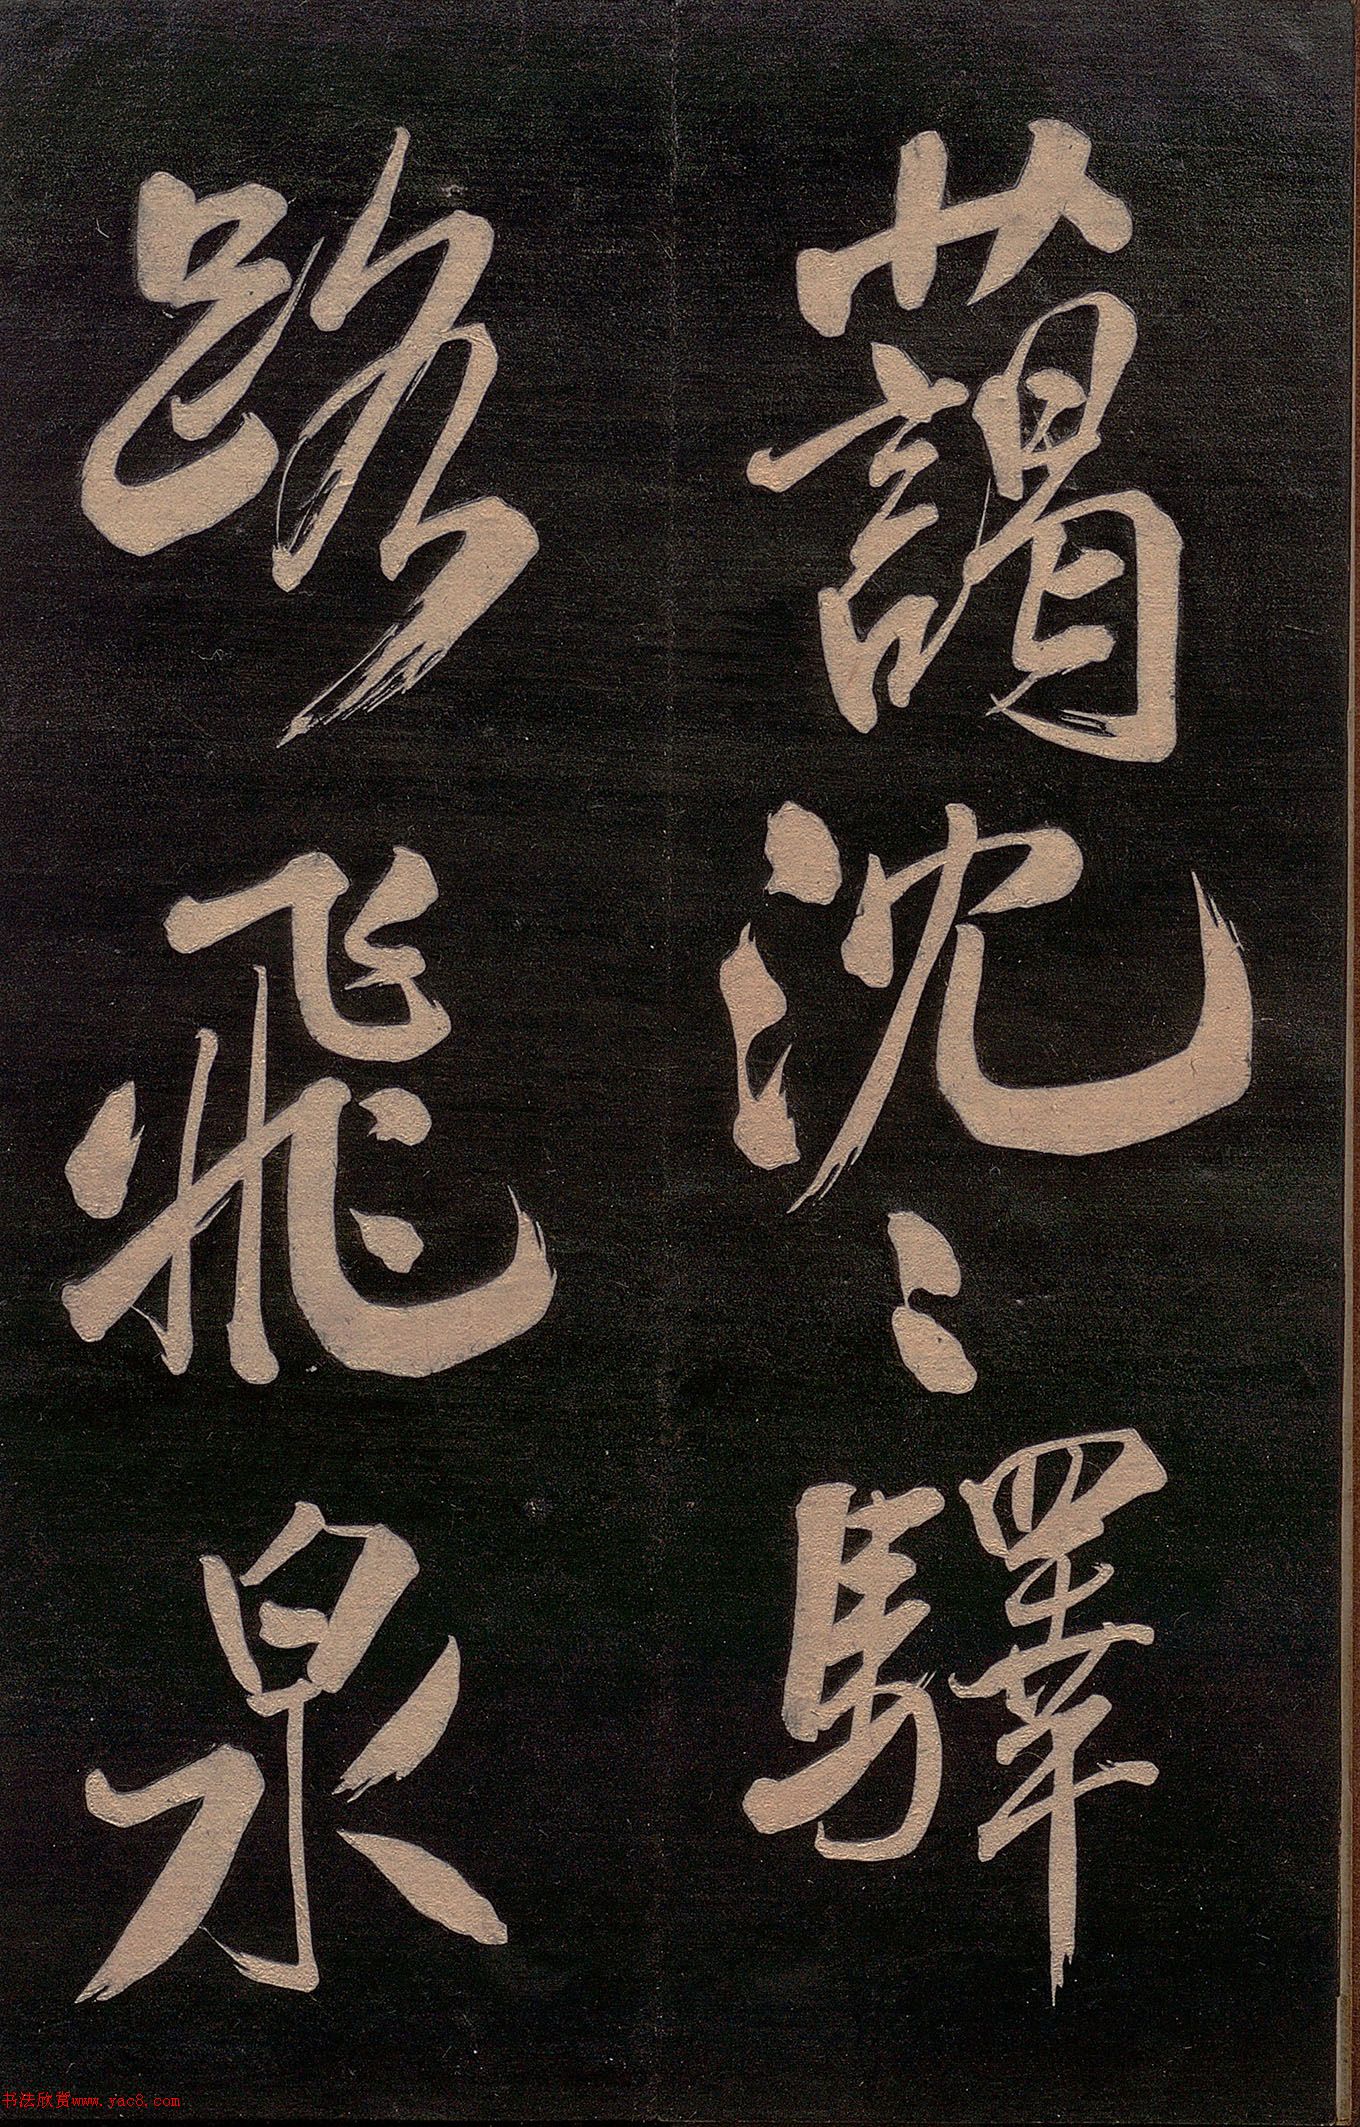 藹沈〻驛
路飛泉
书法欣赏www.yac8.com